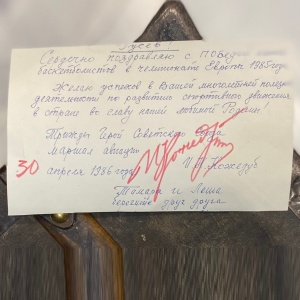 Гусев!
Сердечно поздравляю с победой
баскетболистов в чемпионате Европы 1985 года
Желаю успехов в Вашей многолетней полезной
деятельности по развитию спортивного движения
в стране во славу нашей любимой Родины!
Трижды Герой Советского Союза
маршал авиации
30 апреля 1986 года И. Кожедуб
Тамара и Леша
берегите друг друга